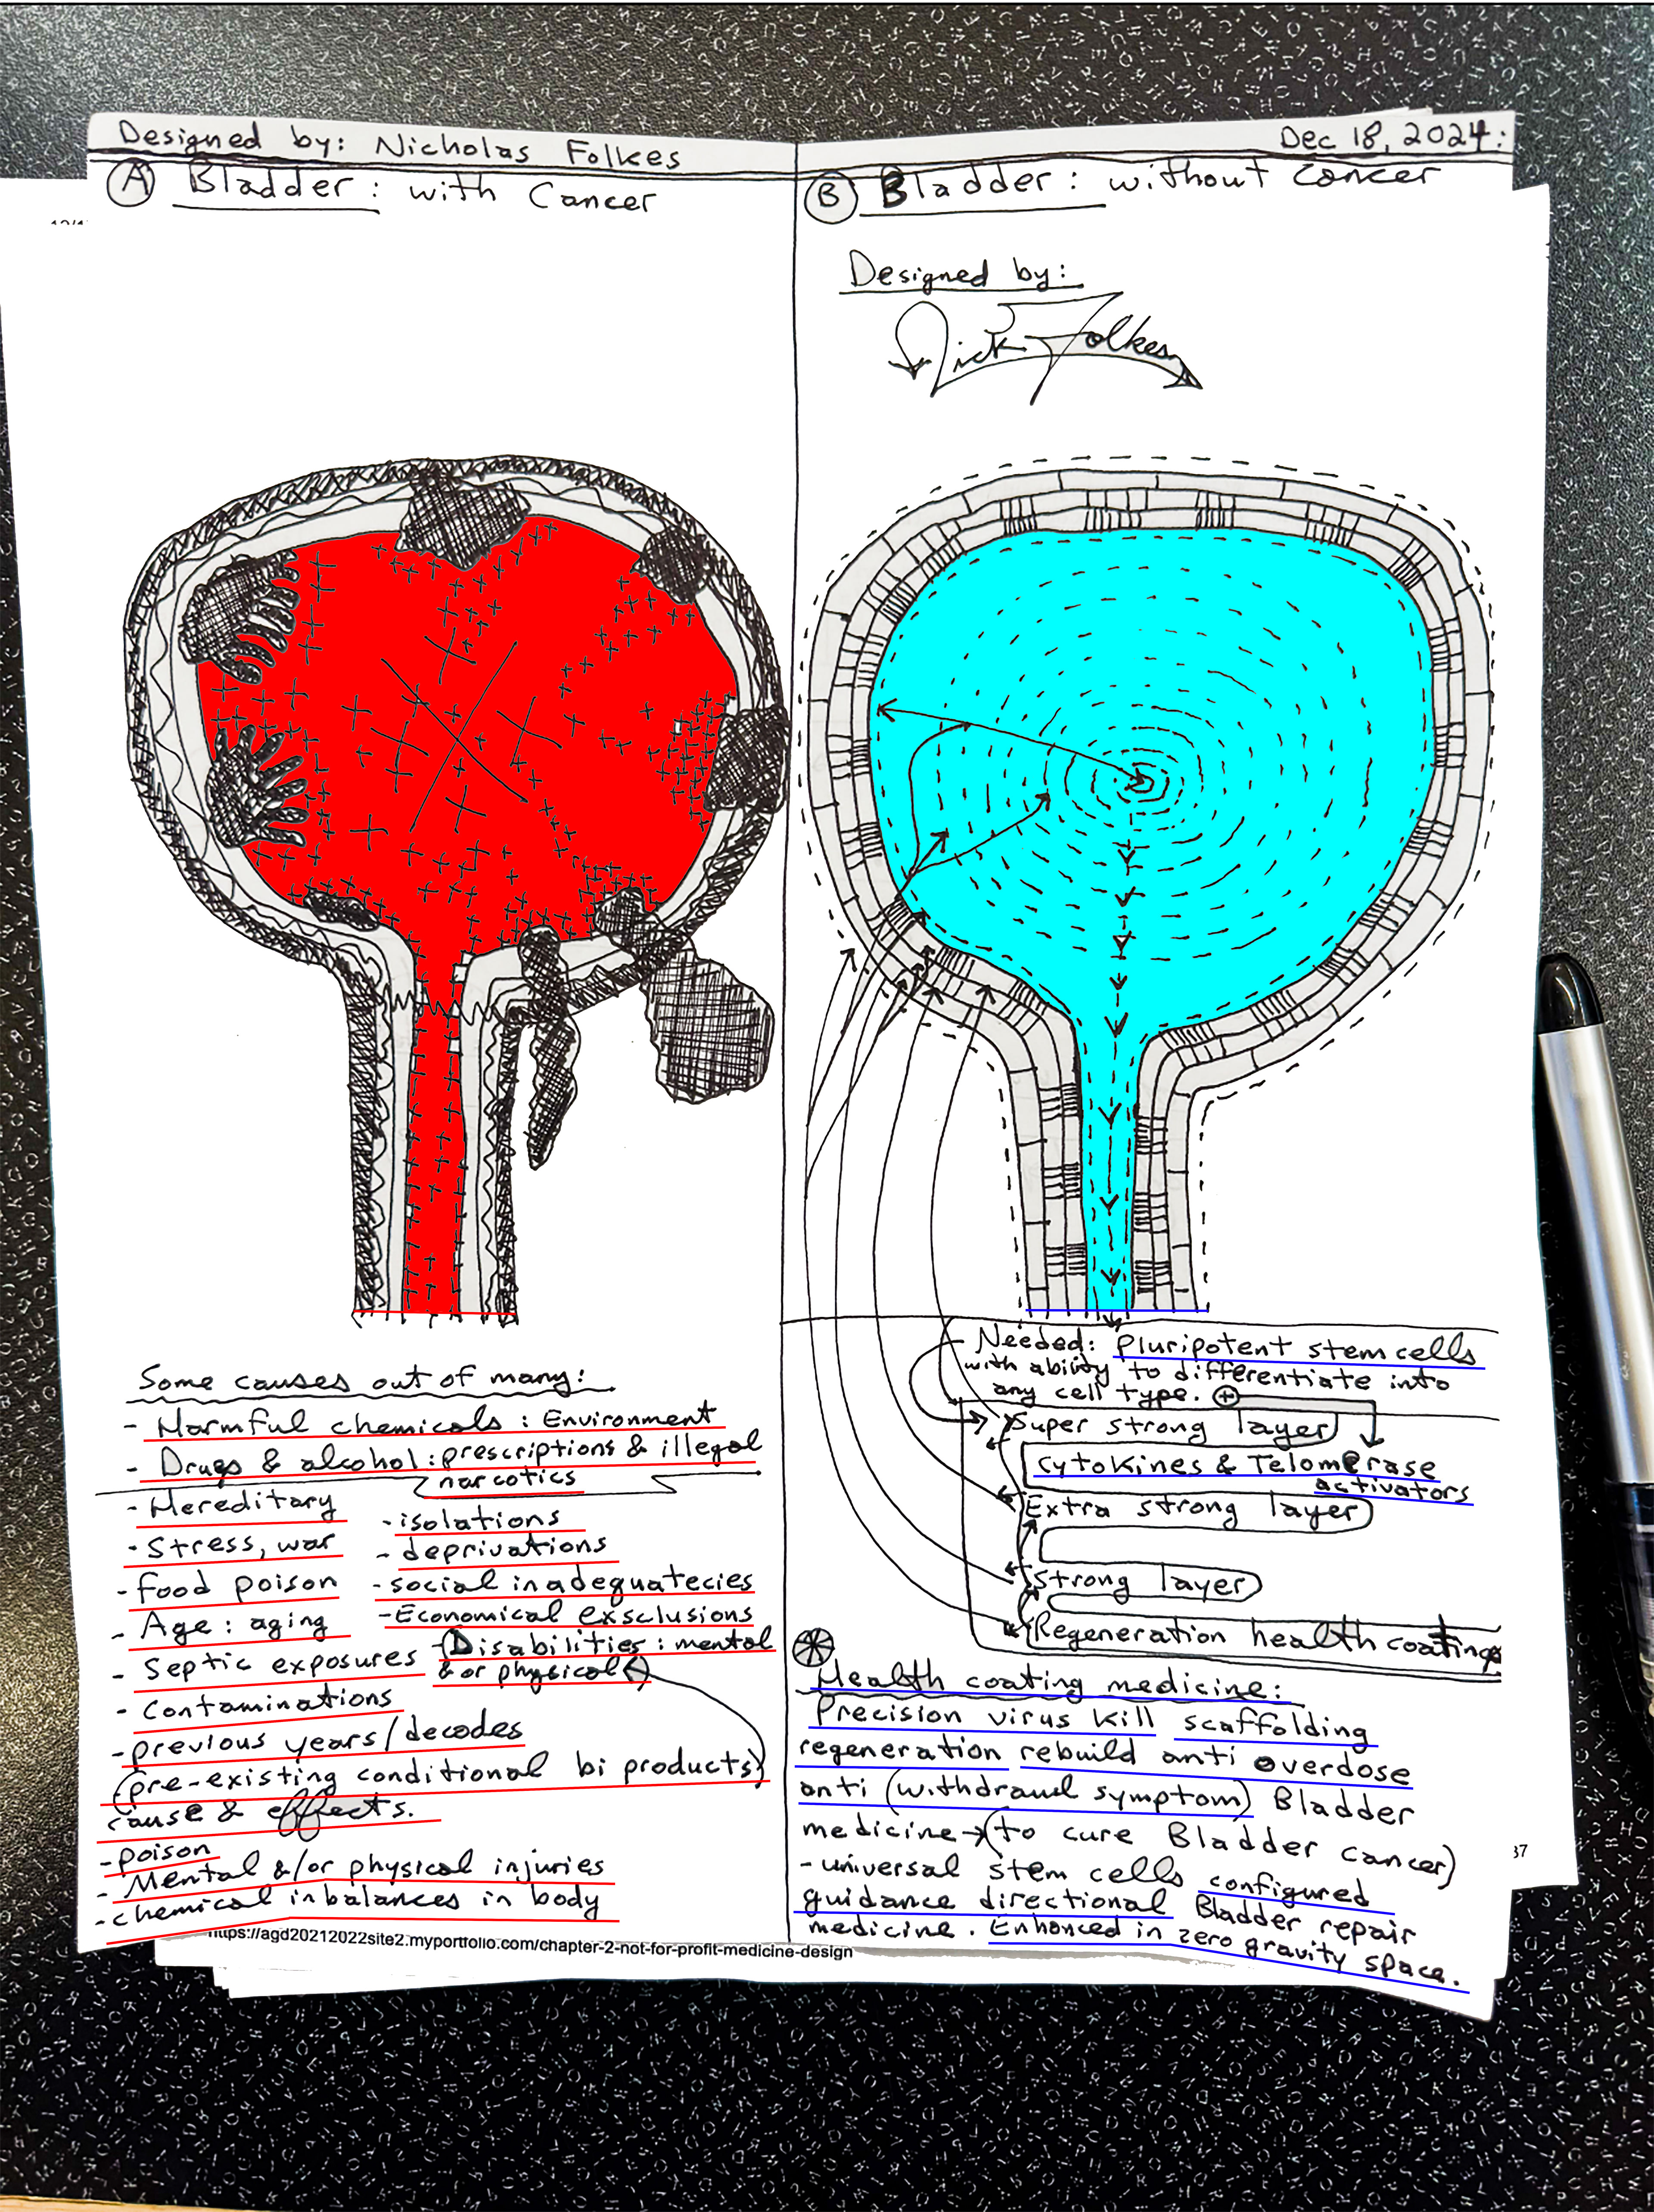 Designed by: Nicholas Folkes
Dec 18, 2024:
A Bladder: with Cancer
B Bladder: without cancer
Designed by:
Nick Folkes
Some causes out of many:
- Harmful chemicals: Environment
- Drugs & alcohol: prescriptions & illegal
narcotics
- Hereditary
- Stress, war
- Food poison
- Age: aging
- Septic exposures
- Contaminations
- isolations
- deprivations
- social inadequatecies
- Economical exsclusions
- Disabilities: mental
&or physical
- previous years/decades
(pre-existing conditional bi products)
cause & effects.
- poison
- Mental &/or physical injuries
- chemical inbalances in body
Needed: Pluripotent stem cells
with ability to differentiate into
any cell type. +
Super strong layer
Cytokines & Telomerase
activators
Extra strong layer
Strong layer
Regeneration health coatings
Health coating medicine:
Precision virus kill scaffolding
regeneration rebuild anti overdose
anti (withdrawl symptom) Bladder
medicine → (to cure Bladder cancer)
- universal stem cells configured
guidance directional Bladder repair
medicine. Enhanced in zero gravity space.
37
https://agd20212022site2.myportfolio.com/chapter-2-not-for-profit-medicine-design